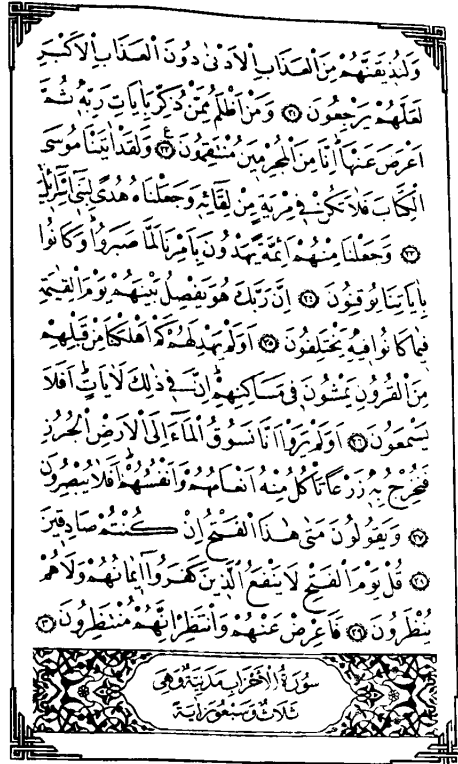 وَلَنُذِيقَنَّهُمْ مِنَ الْعَذَابِ الْاَدْنٰى دُونَ الْعَذَابِ الْاَكْبَرِ
لَعَلَّهُمْ يَرْجِعُونَ ﴿٢١﴾ وَمَنْ اَظْلَمُ مِمَّنْ ذُكِّرَ بِاٰيَاتِ رَبِّهٖ ثُمَّ
اَعْرَضَ عَنْهَا اِنَّا مِنَ الْمُجْرِمٖينَ مُنْتَقِمُونَ ﴿٢٢﴾ وَلَقَدْ اٰتَيْنَا مُوسَى
الْكِتَابَ فَلَا تَكُنْ فٖى مِرْيَةٍ مِنْ لِقَائِهٖ وَجَعَلْنَاهُ هُدًى لِبَنٖى اِسْرَائِلَ
﴿٢٣﴾ وَجَعَلْنَا مِنْهُمْ اَئِمَّةً يَهْدُونَ بِاَمْرِنَا لَمَّا صَبَرُوا وَكَانُوا
بِاٰيَاتِنَا يُوقِنُونَ ﴿٢٤﴾ اِنَّ رَبَّكَ هُوَ يَفْصِلُ بَيْنَهُمْ يَوْمَ الْقِيٰمَةِ
فٖيمَا كَانُوا فٖيهِ يَخْتَلِفُونَ ﴿٢٥﴾ اَوَلَمْ يَهْدِ لَهُمْ كَمْ اَهْلَكْنَا مِنْ قَبْلِهِمْ
مِنَ الْقُرُونِ يَمْشُونَ فٖى مَسَاكِنِهِمْ اِنَّ فٖى ذٰلِكَ لَاٰيَاتٍ اَفَلَا
يَسْمَعُونَ ﴿٢٦﴾ اَوَلَمْ يَرَوْا اَنَّا نَسُوقُ الْمَاءَ اِلَى الْاَرْضِ الْجُرُزِ
فَنُخْرِجُ بِهٖ زَرْعًا تَاْكُلُ مِنْهُ اَنْعَامُهُمْ وَاَنْفُسُهُمْ اَفَلَا يُبْصِرُونَ
﴿٢٧﴾ وَيَقُولُونَ مَتٰى هٰذَا الْفَتْحُ اِنْ كُنْتُمْ صَادِقٖينَ
﴿٢٨﴾ قُلْ يَوْمَ الْفَتْحِ لَا يَنْفَعُ الَّذٖينَ كَفَرُوا اٖيمَانُهُمْ وَلَا هُمْ
يُنْظَرُونَ ﴿٢٩﴾ فَاَعْرِضْ عَنْهُمْ وَانْتَظِرْ اِنَّهُمْ مُنْتَظِرُونَ ﴿٣٠﴾
سُورَةُ الْاَحْزَابِ مَدَنِيَّةٌ وَهِيَ
ثَلَاثٌ وَسَبْعُونَ اٰيَةً